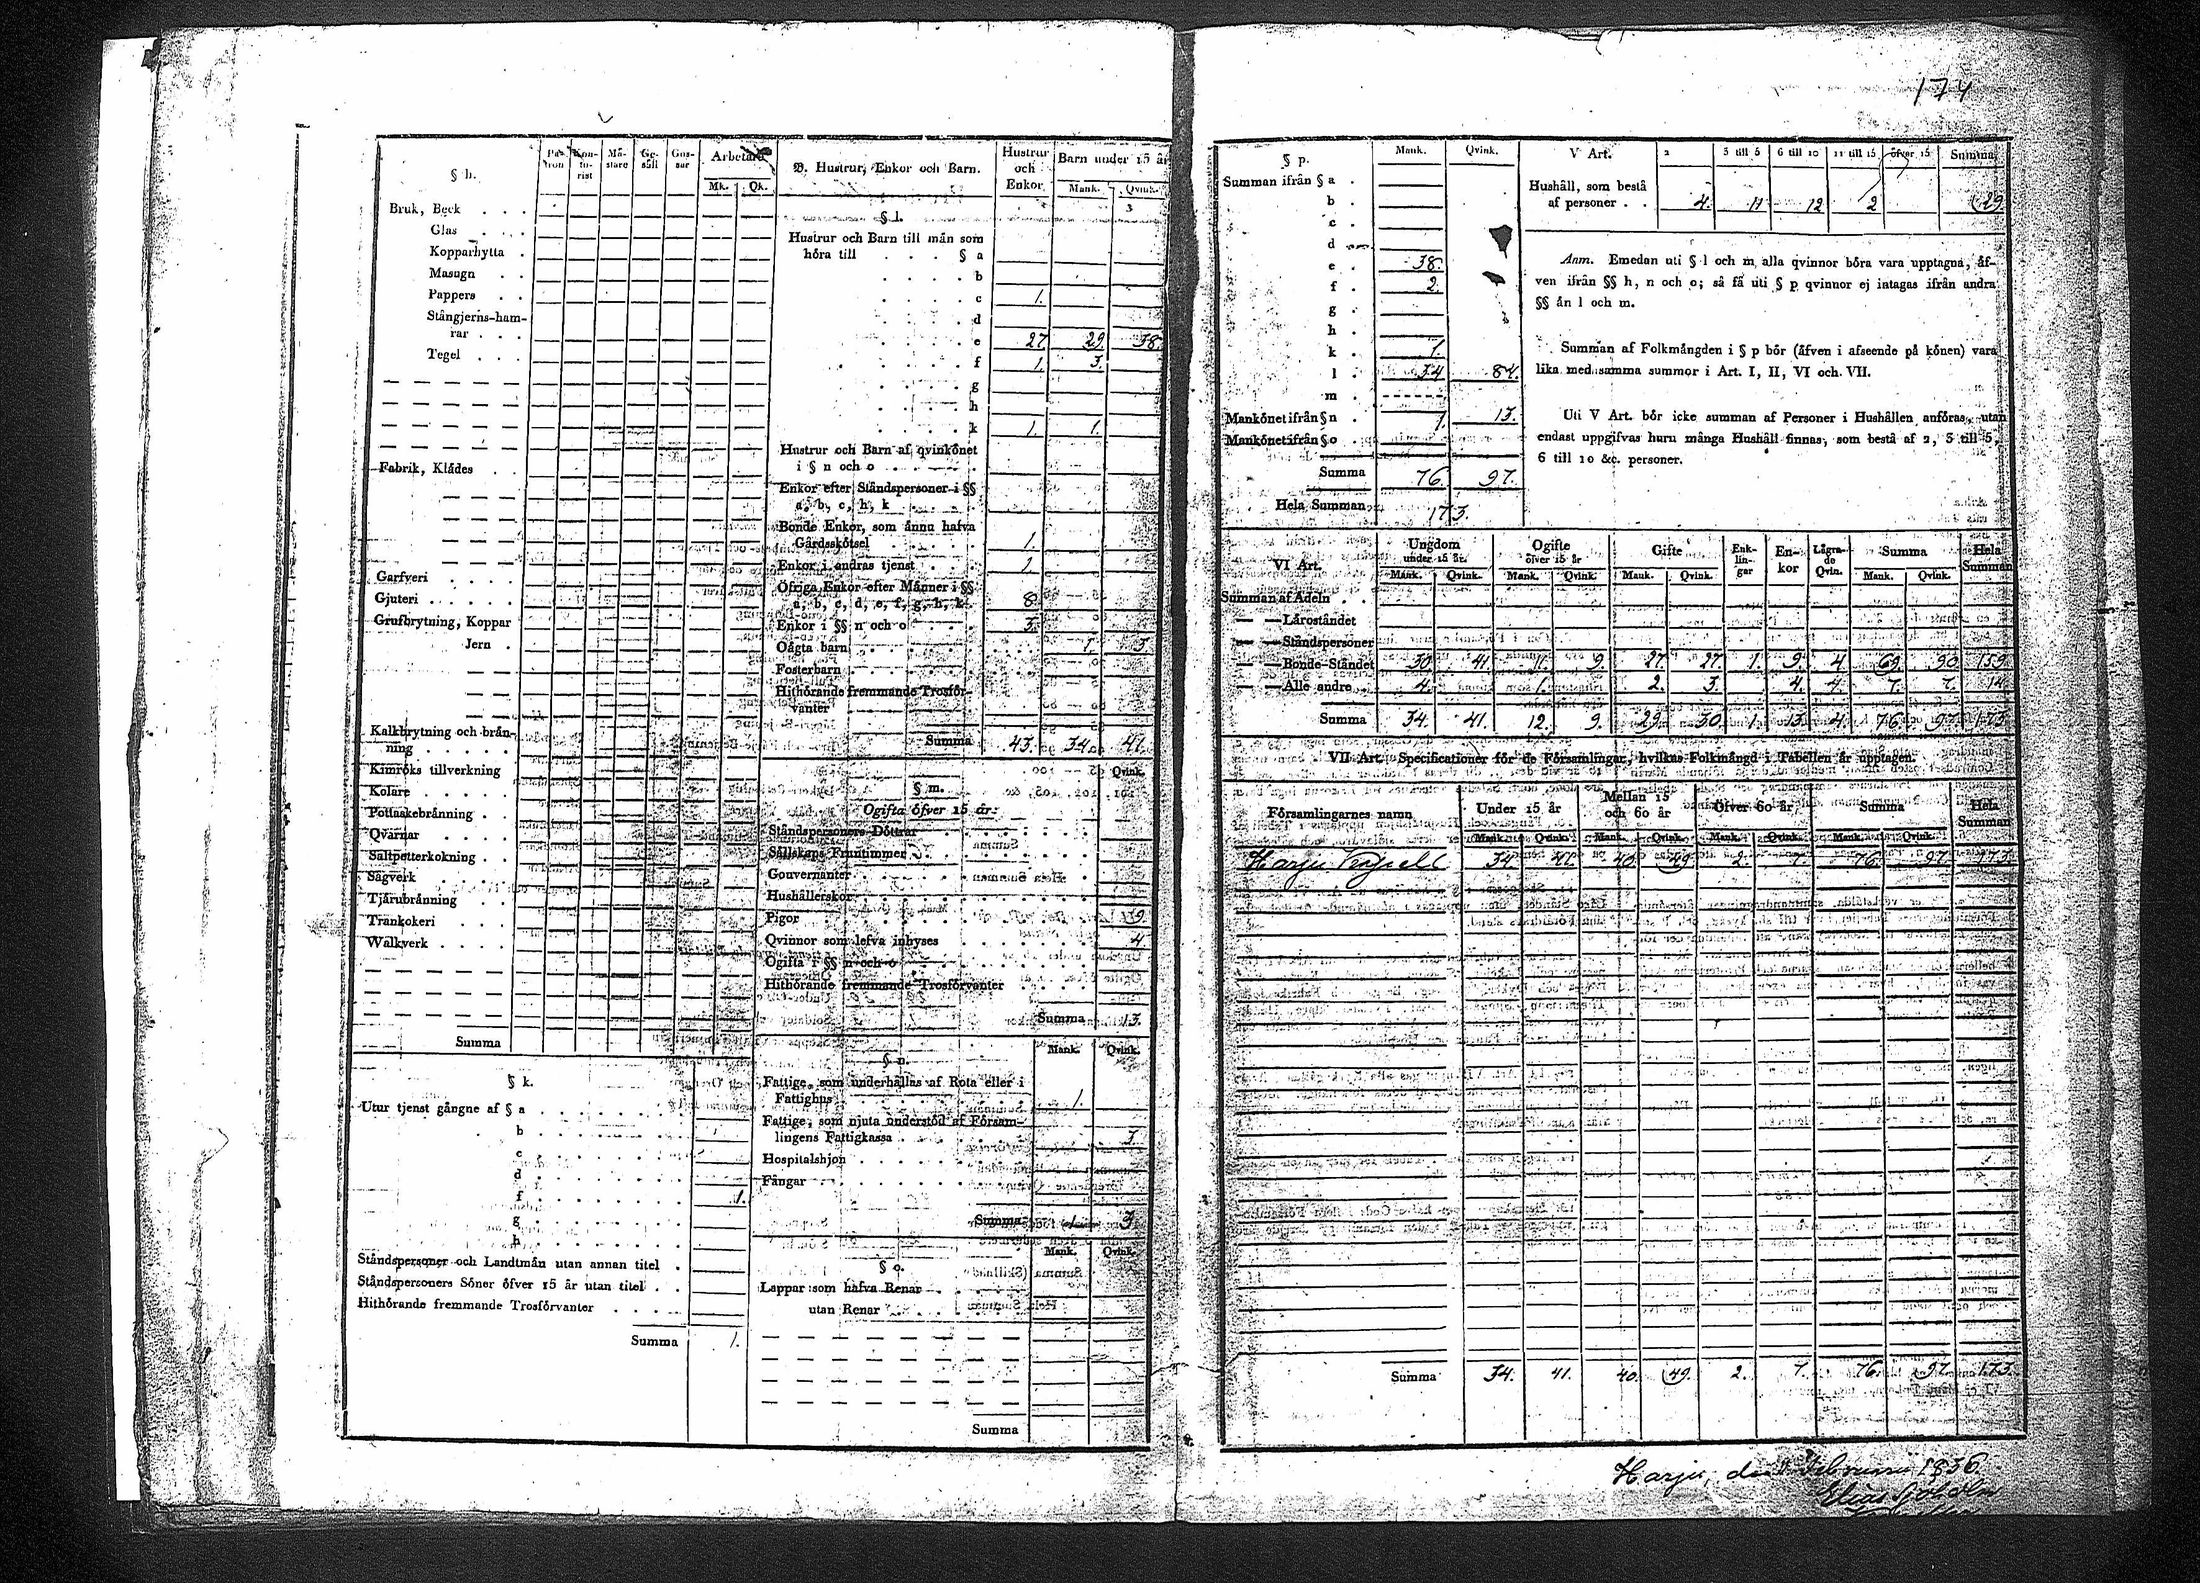 174
§ h.
Pa-tron Kon-to-rist Må-stare Ge-säll Gos-sar Arbetare
Mk. Qk.
Bruk, Beck . . .
Glas . . .
Kopparhytta .
Masugn . .
Pappers . .
Stångjerns-ham-
rar . . .
Tegel . . .
Fabrik, Klådes . .
Garfveri . . . .
Gjuteri . . . . .
Grufbrytning, Koppar
Jern .
Kalkbrytning och brån-
ning . . . . .
Kimröks tillverkning
Kolare . . . . .
Pottaskebrånning . .
Qvarnar . . . .
Saltpetterkokning . .
Sågverk . . . .
Tjårubrånning . .
Trankokeri . . .
Walkverk . . . .
Summa
§ k.
Utur tjenst gångne af § a . . . . . . .
b . . . . . . .
c . . . . . . .
d . . . . . . .
f . . . . . . . 1.
g . . . . . . .
h . . . . . . .
Ståndspersoner och Landtmån utan annan titel .
Ståndspersoners Söner öfver 15 år utan titel . .
Hithörande fremmande Trosförvanter . . . .
Summa 1.
D. Hustrur, Enkor och Barn.
Hustrur och Enkor
Barn under 15 år
Mank. Qvink.
§ l.
Hustrur och Barn till mån som
höra till . . . . § a
b
c 1.
d
e 27. 29. 38.
f 1. 3.
g
h
k 1. 1.
Hustrur och Barn af qvinkönet
i § n och o . . . . .
Enkor efter Ståndspersoner i §§
a, b, c, h, k . . . .
Bonde Enkor, som ännu hafva
Gårdsskötsel . . . . 1.
Enkor i andras tjenst . . . 1.
Öfriga Enkor efter Männer i §§
a, b, c, d, e, f, g, h, k 8.
Enkor i §§ n och o . . . . 3.
Oägta barn . . . . . . 1. 3.
Fosterbarn . . . . . .
Hithörande fremmande Trosför-
vanter . . . . .
Summa 43. 34. 41.
Qvink.
§ m.
Ogifta öfver 15 år:
Ståndspersoners Döttrar . . . .
Sållskaps Fruntimmer . . . .
Gouvernanter . . . .
Hushållerskor . . . .
Pigor . . . . 9.
Qvinnor som lefva inhyses . . . . 4.
Ogifta i §§ n och o . . . .
Hithörande fremmande Trosförvanter . . . .
Summa 13.
§ n.
Mank. Qvink.
Fattige, som underhållas af Rota eller i
Fattighus . . . . 1.
Fattige, som njuta understöd af Försam-
lingens Fattigkassa . . . . 3.
Hospitalshjon . . . .
Fångar . . . .
Summa 1. 3.
Mank. Qvink.
§ o.
Lappar som hafva Renar . . . .
utan Renar . . . .
Summa
§ p.
Mank. Qvink.
Summan ifrån § a .
b .
c .
d
e . 38.
f . 2.
g .
h .
k . 1.
l . 34 84.
m .
Mankönet ifrån § n . 1. 13.
Mankönet ifrån § o .
Summa 76. 97.
Hela Summan, 173.
V Art. 2 3 till 5 6 till 10 11 till 15 öfver 15 Summa
Hushåll, som bestå
af personer . . 4. 11 12 2 29.
Anm. Emedan uti § l och m alla qvinnor böra vara upptagna, åf-
ven ifrån §§ h, n och o; så få uti § p qvinnor ej intagas ifrån andra
§§ ån l och m.
Summan af Folkmången i § p bör (åfven i afseende på könen) vara
lika med samma summor i Art. I, II, VI och VII.
Uti V Art. bör icke summan af Personer i Hushållen anföras, utan
endast uppgifvas huru många Hushåll finnas, som bestå af 2, 3 till 5,
6 till 10 &c. personer.
VI Art.
Ungdom under 15 år. Ogifte öfver 15 år Gifte Enk-lin-gar En-kor Lågra-de Qvin. Summa Hela Summan
Mank. Qvink. Mank. Qvink. Mank. Qvink. Mank. Qvink.
Summan af Adeln . .
— — Låroståndet
— — Ståndspersoner
— — Bonde-Ståndet 30. 41. 11. 9. 27. 27. 1. 9. 4. 69. 90. 159.
— — Alle andre . 4. 1. 2. 3. 4. 4. 7. 7. 14.
Summa 34. 41. 12. 9. 29. 30. 1. 13. 4. 76. 97. 173.
VII Art. Specificationer för de Församlingar, hvilkas Folkmångd i Tabellen år upptagen.
Församlingarnes namn Under 15 år Mellan 15 och 60 år Öfver 60 år Summa Hela Summan
Mank. Qvink. Mank. Qvink. Mank. Qvink. Mank. Qvink.
Harju Capell 34. 41. 40. 49. 2. 7. 76. 97. 173.
Summa 34. 41. 40. 49. 2. 7. 76. 97. 173.
Harju, den Februari 1836